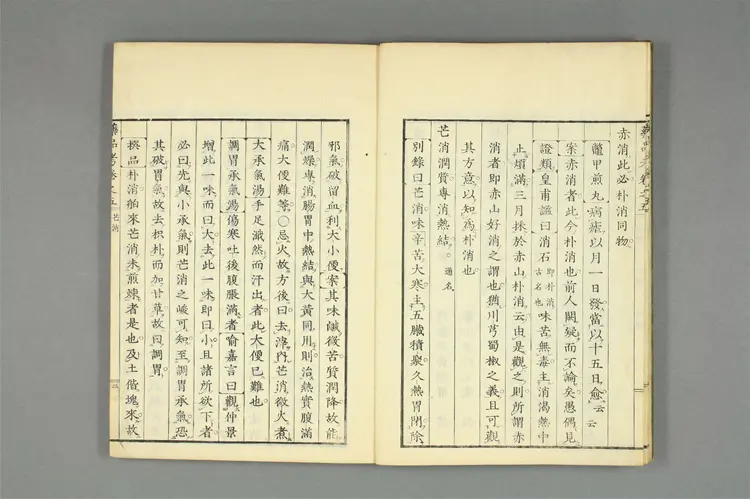 赤消此必朴消同物。
鼈甲煎丸病瘧以月一日發當以十五日愈云云
案赤消者此今朴消也前人闕疑而不論矣愚偶見
證類皇甫謐曰消石即朴消古名也味苦無毒主消渴熱中
止煩滿三月採於赤山朴消云由是觀之則所謂赤
消者即赤山好消之謂也猶川芎蜀椒之義且可觀
其方意以知為朴消也
芒消潤質專消熱結。通名
別錄曰芒消味辛苦大寒主五臟積聚久熱胃閉除
邪氣破留血利大小便案其味鹹微苦質潤降故能
潤燥專消腸胃中熱結與大黃同用則治熱實腹滿
痛大便難等○忌火故方後曰去滓內芒消微火煮
大承氣湯手足濈然而汗出者此大便已難也
調胃承氣湯傷寒吐後腹脹滿者喻嘉言曰觀仲景
增此一味而曰大去此一味即曰小且諸所欲下者
必曰先與小承氣則芒消之峻可知至調胃承氣恐
其破胃氣故去枳朴而加甘草故曰調胃
撰品朴消舶來芒消未煎煉者是也及土偕塊來故
藥品考卷之五 芒消